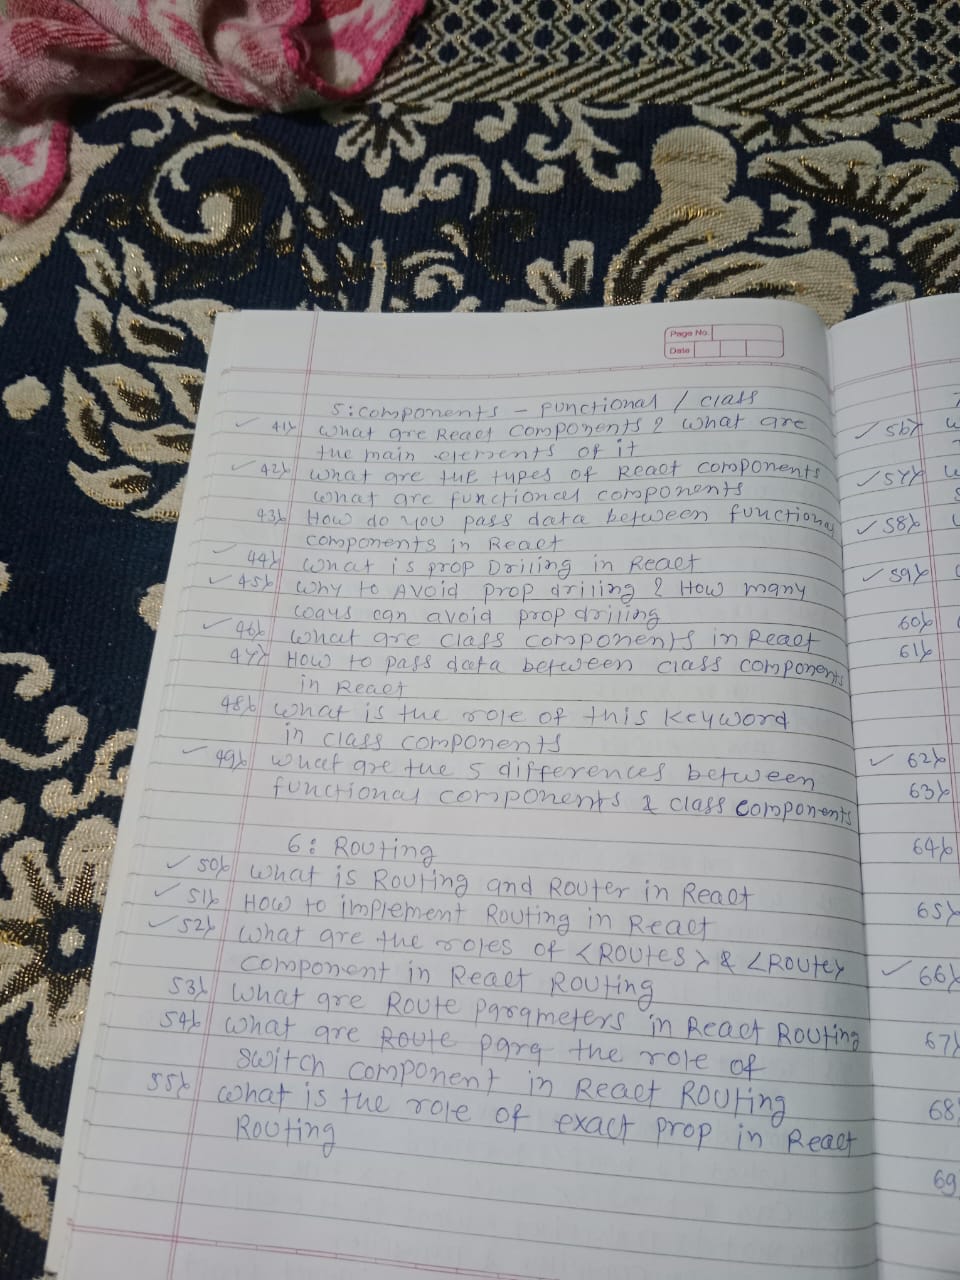 Page No.
Date
5: components - Functional / class
41) what are React components? what are
the main elements of it
42) what are the types of React components
what are functional components
43) How do you pass data between functional
components in React
44) what is prop Driling in React
45) why to Avoid prop driling? How many
ways can avoid prop driling
46) what are class components in React
47) How to pass data between class components
in React
48) what is the role of this keyword
in class components
49) what are the 5 differences between
functional components & class components
6: Routing
50) what is Routing and Router in React
51) How to implement Routing in React
52) what are the roles of <Routes> & <Route>
component in React Routing
53) what are Route parameters in React Routing
54) what are Route para the role of
switch component in React Routing
55) what is the role of exact prop in React
Routing
56)
57)
58)
59)
60)
61)
62)
63)
64)
65)
66)
67)
68)
69